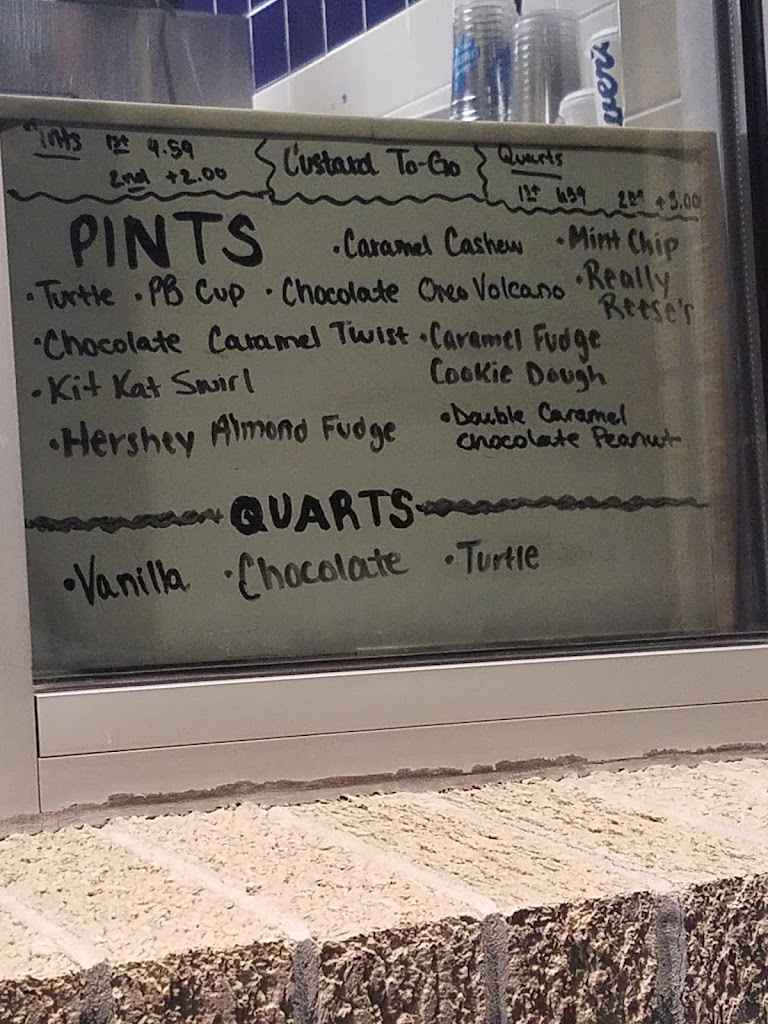 Pints 1st 4.59
2nd +2.00
Custard To-Go
Quarts
1st 6.59 2nd +3.00
PINTS
• Caramel Cashew • Mint Chip
• Turtle • PB Cup • Chocolate Oreo Volcano • Really Reese's
• Chocolate Caramel Twist • Caramel Fudge
Cookie Dough
• Kit Kat Swirl
• Hershey Almond Fudge • Double Caramel
Chocolate Peanut
QUARTS
• Vanilla • Chocolate • Turtle